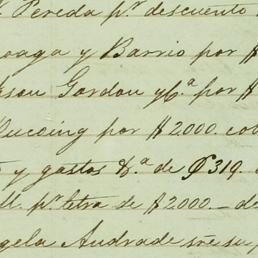 Pereda pr. descuento
oaga y Barrio por $
kson Gordon y Ca. por $
ucoing por $2000. cob
y gastos &a. de $319.
pr. letra de $2000 – de
ngela Andrade s/re su p